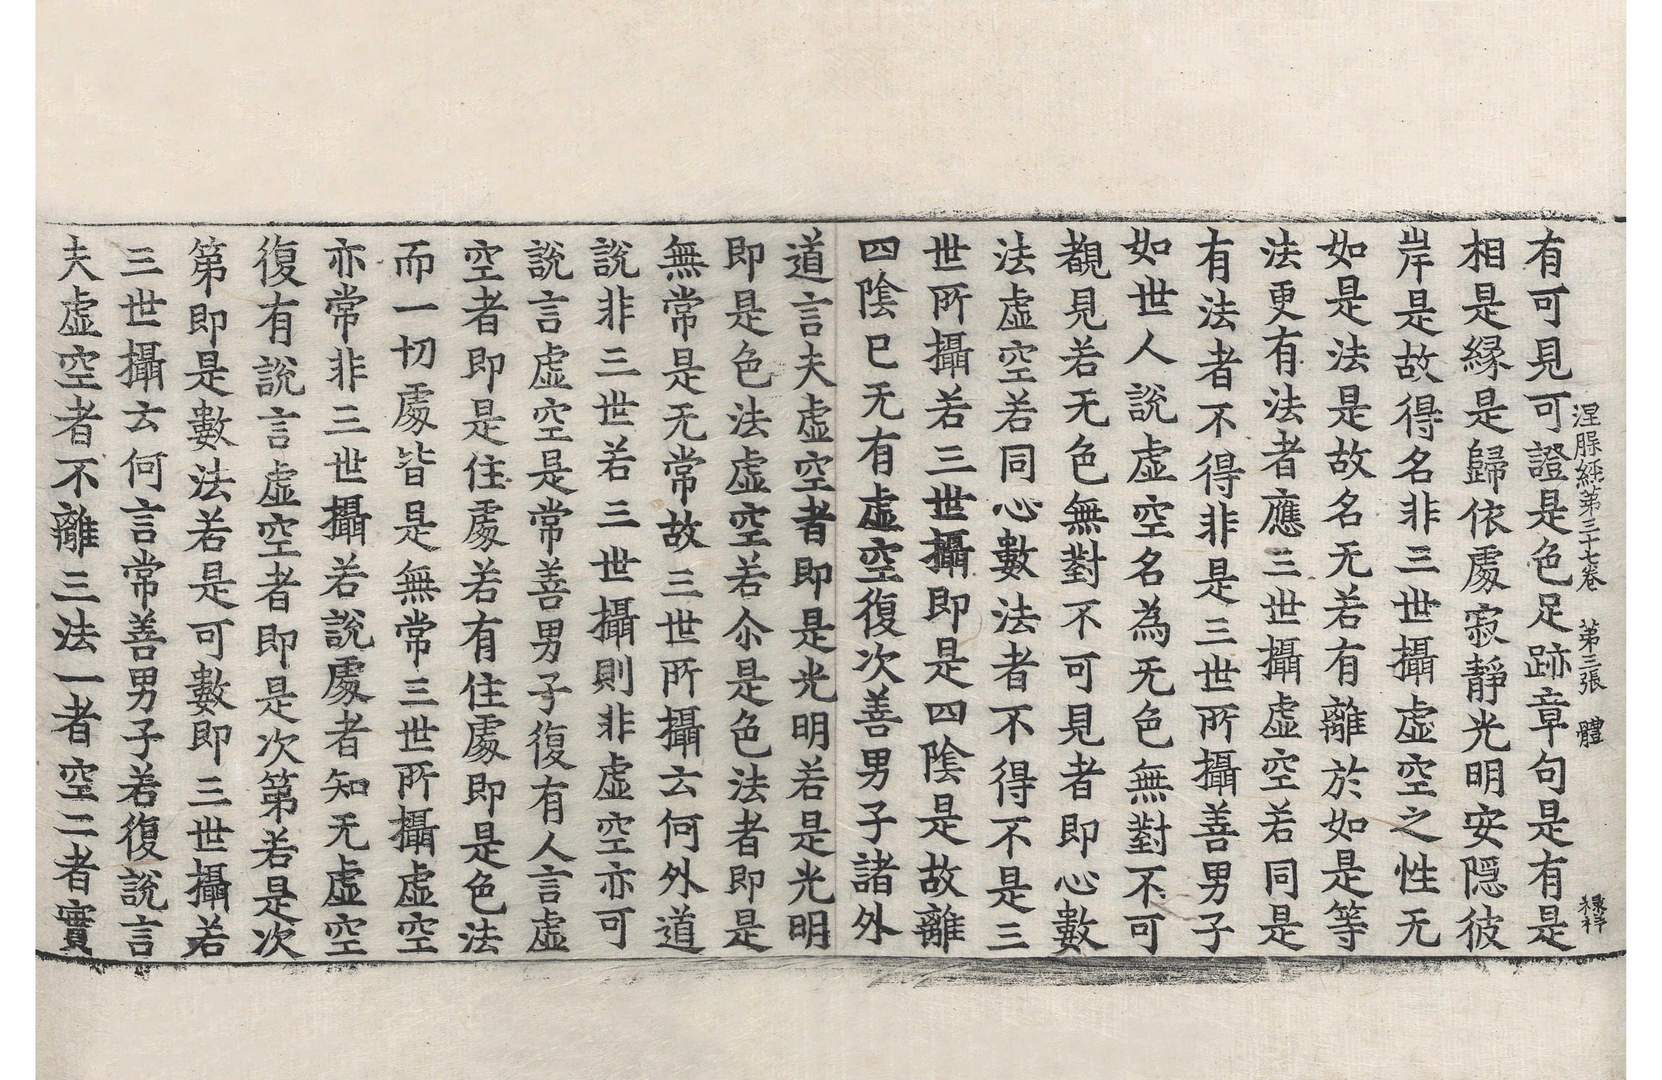 涅槃經第三十七卷 第三張 體
有可見可證是色足跡章句是有是
相是縁是歸依處寂靜光明安隱彼
岸是故得名非三世攝虛空之性无
如是法是故名无若有離於如是等
法更有法者應三世攝虛空若同是
有法者不得非是三世所攝善男子
如世人說虛空名為无色無對不可
覩見若无色無對不可見者即心數
法虛空若同心數法者不得不是三
世所攝若三世攝即是四陰是故離
四陰已无有虛空復次善男子諸外
道言夫虛空者即是光明若是光明
即是色法虛空若尒是色法者即是
無常是无常故三世所攝云何外道
說非三世若三世攝則非虛空亦可
說言虛空是常善男子復有人言虛
空者即是住處若有住處即是色法
而一切處皆是無常三世所攝虛空
亦常非三世攝若說處者知无虛空
復有說言虛空者即是次第若是次
第即是數法若是可數即三世攝若
三世攝云何言常善男子若復說言
夫虛空者不離三法一者空二者實